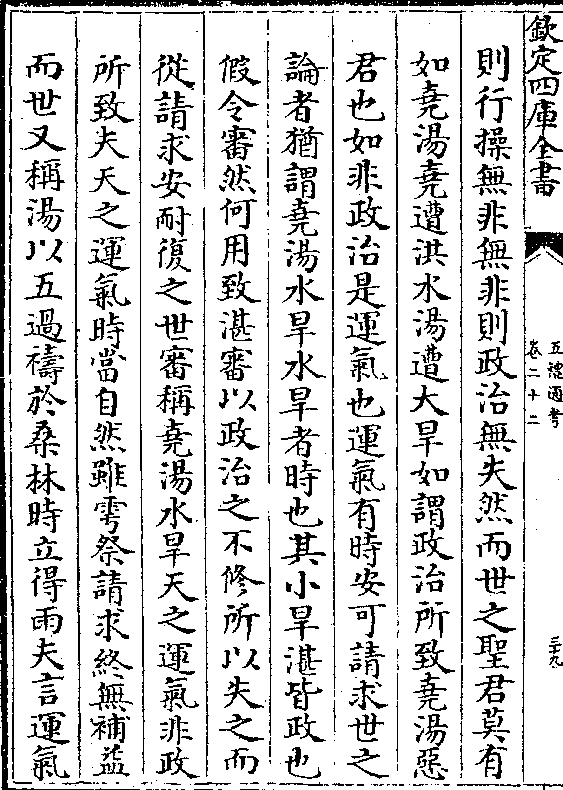 欽定四庫全書
五禮通考
卷二十二
三十九
則行操無非無非則政治無失然而世之聖君莫有
如堯湯堯遭洪水湯遭大旱如謂政治所致堯湯惡
君也如非政治是運氣也運氣有時安可請求世之
論者猶謂堯湯水旱水旱者時也其小旱湛皆政也
假令審然何用致湛審以政治之不修所以失之而
從請求安耐復之世審稱堯湯水旱天之運氣非政
所致夫天之運氣時當自然雖雩祭請求終無補益
而世又稱湯以五過禱於桑林時立得雨夫言運氣